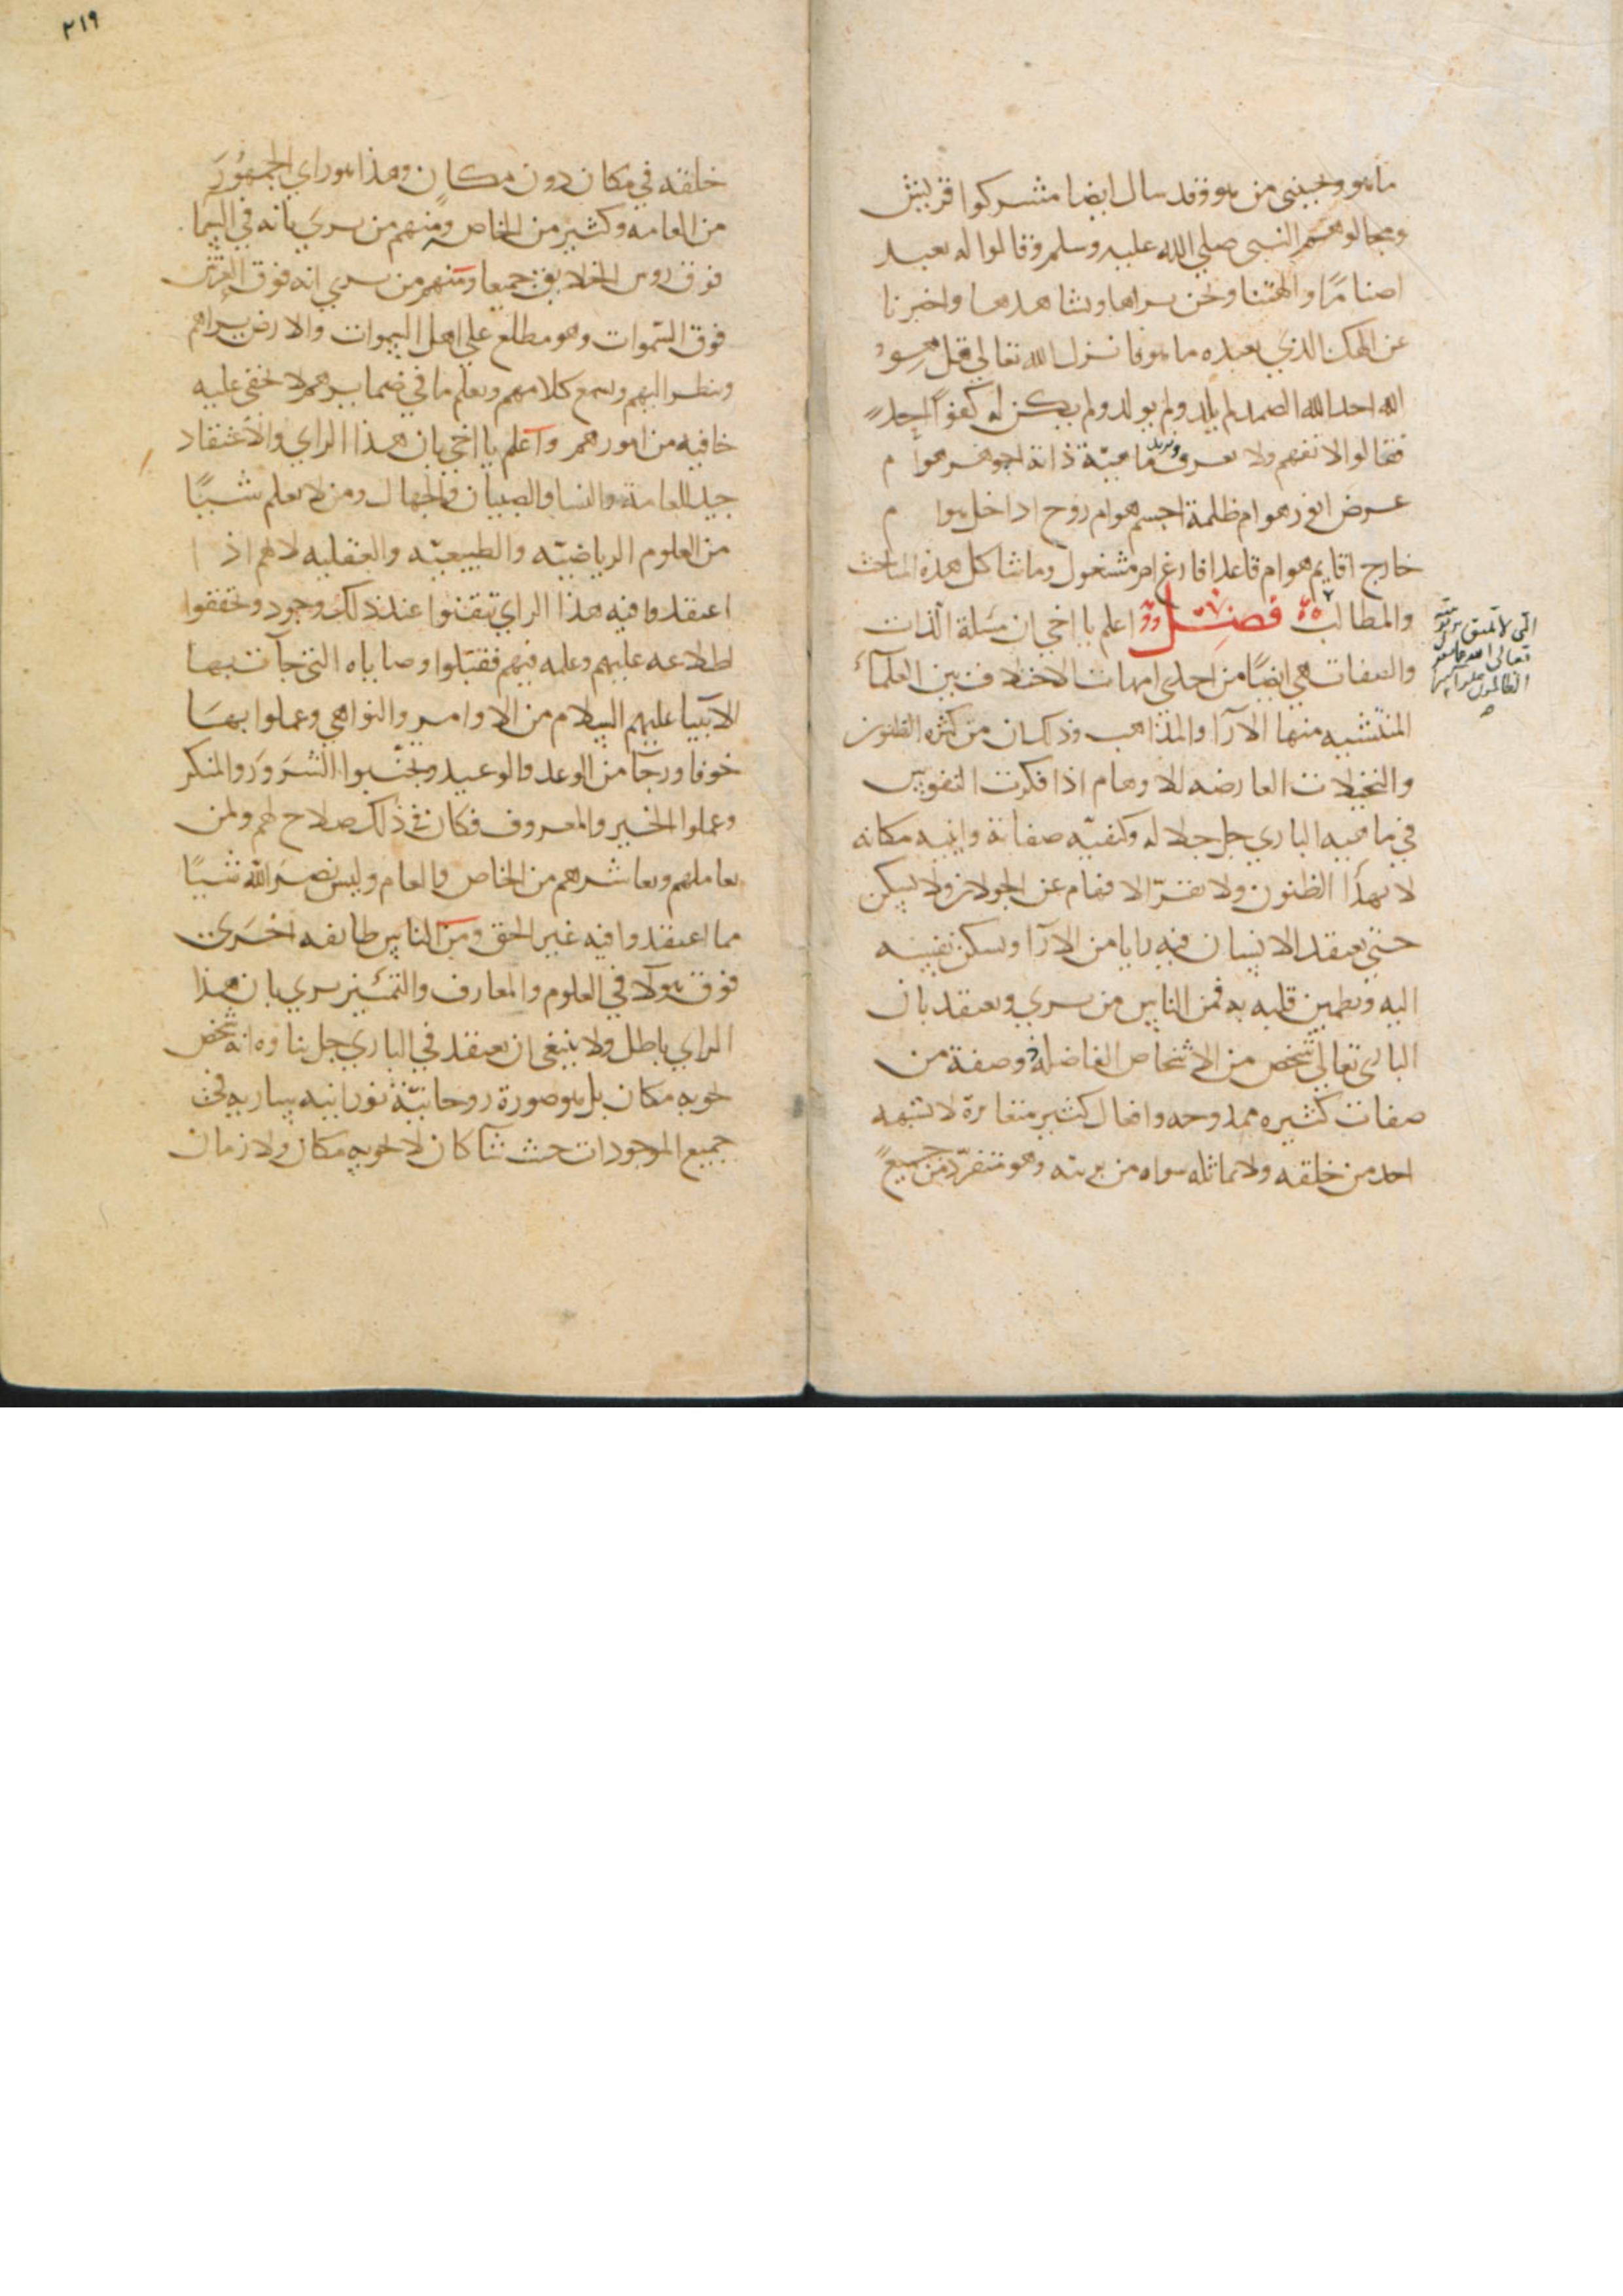 ما هو وجبني من هو وقد سال ايضا مشركوا قريش
ومجالوهم النبي صلي الله عليه وسلم وقالوا له نعبد
اصناما والهتنا ونحن نراها ونشاهدها واخبرنا
عن الهك الذي نعبده ما هو فانزل الله تعالي قل هو
الله احد الله الصمد لم يلد ولم يولد ولم يكن له كفوا احد
فقالوا لا نفهم ولا نعرف ونريد ماهيّة ذاته اجوهر هو ام
عرض انور هو ام ظلمة اجسم هو ام روح اداخل هو ام
خارج اقايم هو ام قاعد افارغ ام مشغول وما شاكل هذه المباحث
والمطالب فصل اعلم يا اخي ان مسلة الذات
والصفات هي ايضًا من احدي امهات الاختلاف بين العلمآء
المتشبه منها الارآ والمذاهب وذلك ان من كثره الظنون
والتخيلات العارضه للاوهام اذا فكرت النفوس
في ماهيه الباري جل جلاله وكيفيّه صفاته وانيه مكانه
لا تهدأ الظنون ولا تقرّ الافهام عن الجولان ولا تسكن
حتي يعتقد الانسان فيه رايا من الارآ وتسكن نفسه
اليه ويطمين قلبه به فمن الناس من يري ويعتقد بان
الباري تعالي شخص من الاشخاص الفاضله ذو صفة من
صفات كثيره ممدوحه وافعال كثير متغايرة لا يشبهه
احد من خلقه ولا يماثله سواه من بريته وهو متفرّد من جميع
التي لا تليق بربوبيته
تعالي الله عما يقول
الظالمون علوا كبيرا
ه
٢١٩
خلقه في مكان دون مكان وهذا هو راي الجمهور
من العامه وكثير من الخاص ومنهم من يري بانه في السما
فوق روس الخلايق جميعا ومنهم من يري انه فوق العرش
فوق السّموات وهو مطلع علي اهل السموات والارض يراهم
وينظر اليهم ويسمع كلامهم ويعلم ما في ضمايرهم لا تخفي عليه
خافيه من امورهم واعلم يا اخي بان هذا الراي والاعتقاد
جيد للعامة والنسا والصبيان والجهال ومن لا يعلم شيًا
من العلوم الرياضيّه والطبيعيّه والعقليه لانهم اذا
اعتقدوا فيه هذا الراي تيقنوا عند ذلك وجود وتحققوا
اطلاعه عليهم وعلمه فيهم فقبلوا وصاياه التي جآت بها
الانبيا عليهم السلام من الاوامر والنواهي وعملوا بها
خوفا ورجآ من الوعد والوعيد وتجنّبوا الشرور والمنكر
وعملوا الخير والمعروف فكان في ذلك صلاح لهم ولمن
يعاملهم ويعاشرهم من الخاص والعام وليس يضر الله شيًا
مما اعتقدوا فيه غير الحق ومن الناس طايفه اخري
فوق هولآ في العلوم والمعارف والتمييز يري بان هذا
الراي باطل ولا ينبغي ان يعتقد في الباري جل ثناوه انه شخص
يحويه مكان بل هو صورة روحانيّة نورانيه ساريه في
جميع الموجودات حيث شآ كان لا يحويه مكان ولا زمان